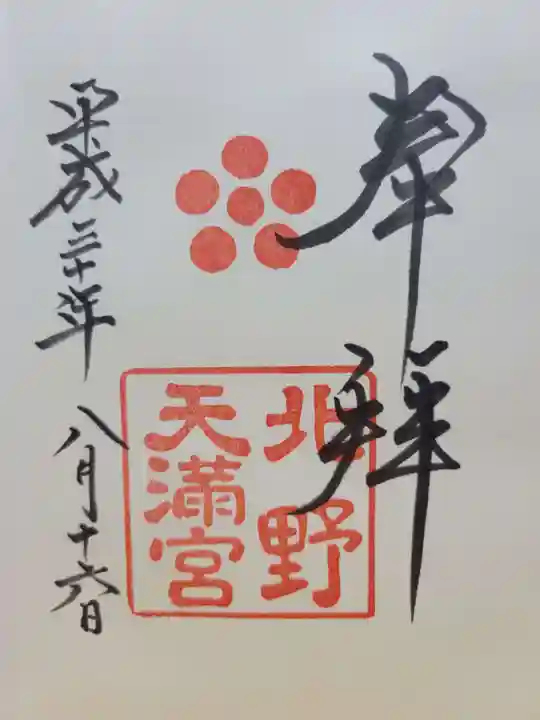 奉拝
北野
天満宮
平成三十年八月十六日